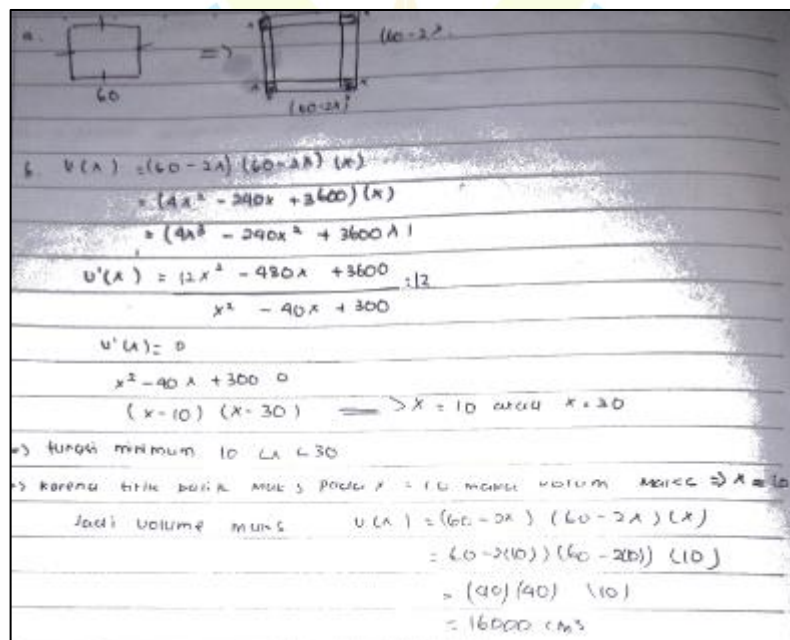 a.
60
=>
(60-2x
(60-2x)
b. V(x) = (60-2x) (60-2x) (x)
= (4x² - 240x + 3600) (x)
= (4x³ - 240x² + 3600x)
V'(x) = 12x² - 480x + 3600 :12
x² - 40x + 300
V'(x) = 0
x² - 40x + 300 0
(x-10) (x-30) => x = 10 atau x = 30
=> fungsi minimum 10 < x < 30
=> karena titik balik maks pada x = 10 maka volum maks => x = 10
Jadi volume maks V(x) = (60-2x) (60-2x) (x)
= 60-2(10)) (60-2(10)) (10)
= (40) (40) (10)
= 16000 cm3